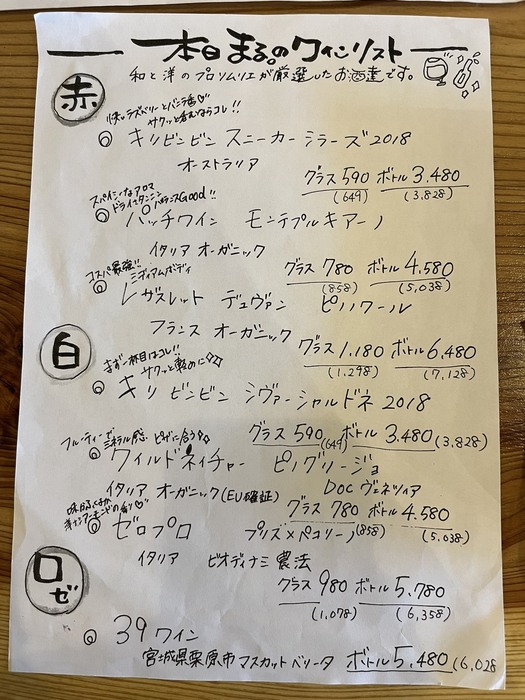 本日まる。のワインリスト
和と洋のプロソムリエが厳選したお酒達です。
赤
快いラズベリーとバニラ香♡
サクッと呑むならコレ!!
◎ キリビンビン スニーカー シラーズ 2018
オーストラリア
グラス 590 ボトル 3.480
(649) (3,828)
スパイシィなアロマ
ドライなタンニン バランスGood!!
◎ ハッチワイン モンテプルキアーノ
イタリア オーガニック
グラス 780 ボトル 4.580
(858) (5,038)
コスパ最強!!
ミディアムボディ
◎ レガスレット デュヴァン ピノノワール
フランス オーガニック
グラス 1,180 ボトル 6,480
(1,298) (7,128)
白
まず一杯目はコレ!!
サクッと軽めに
◎ キリビンビン シヴァーシャルドネ 2018
グラス 590 ボトル 3.480
(649) (3,828)
フルーティーで
ミネラル感 ピザに合う
◎ ワイルドネイチャー ピノグリージョ
イタリア オーガニック(EU確証) DOC ヴェネツィア
グラス 780 ボトル 4.580
(858) (5,038)
◎ ゼロプロ プリズ×パコリーノ
イタリア ビオディナミ農法
グラス 980 ボトル 5.780
(1,078) (6,358)
ロゼ
◎ 39ワイン
宮城県栗原市マスカットベリータ ボトル 5,480 (6,028